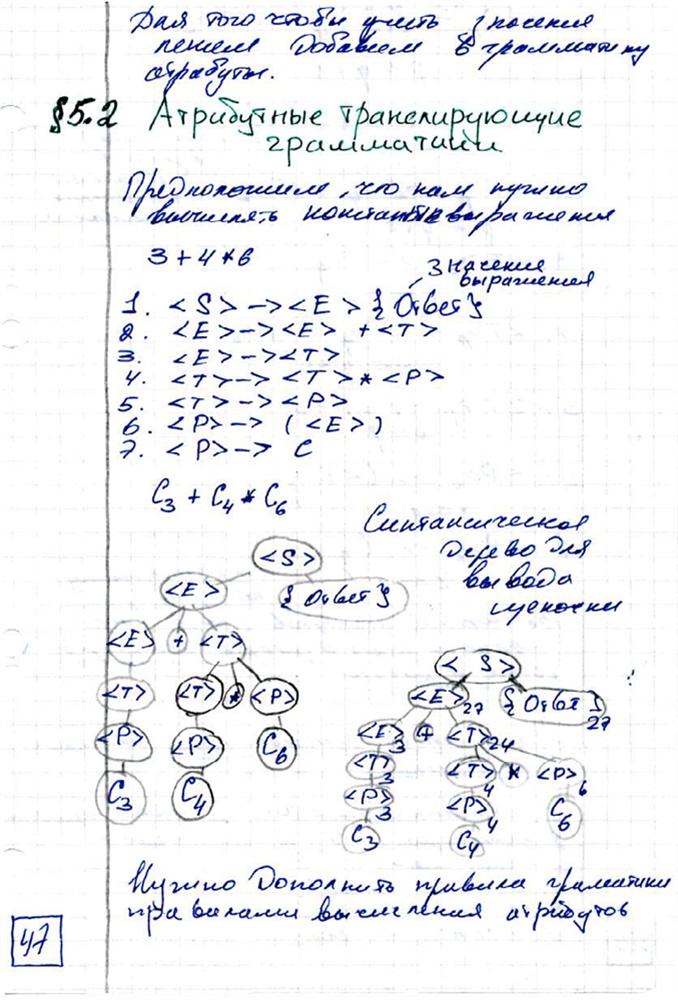 Для того чтобы учить значения
лексем добавляем в грамматику
атрибуты.
§5.2 Атрибутные транслирующие
грамматики
Предположим, что нам нужно
вычислять константные выражения
3 + 4 * 6
значения
выражения
1. <S> -> <E> {Ответ}
2. <E> -> <E> + <T>
3. <E> -> <T>
4. <T> -> <T> * <P>
5. <T> -> <P>
6. <P> -> ( <E> )
7. <P> -> C
C3 + C4 * C6
Синтаксическое
дерево для
вывода
цепочки
<S>
<E> {Ответ}
<E> + <T>
<T> <T> * <P>
<P> <P> C6
C3 C4
<S>
<E>27 {Ответ}27
<E>3 + <T>24
<T>3 <T>4 * <P>6
<P>3 <P>4 C6
C3 C4
Нужно дополнить правила граматики
правилами вычисления атрибутов
47